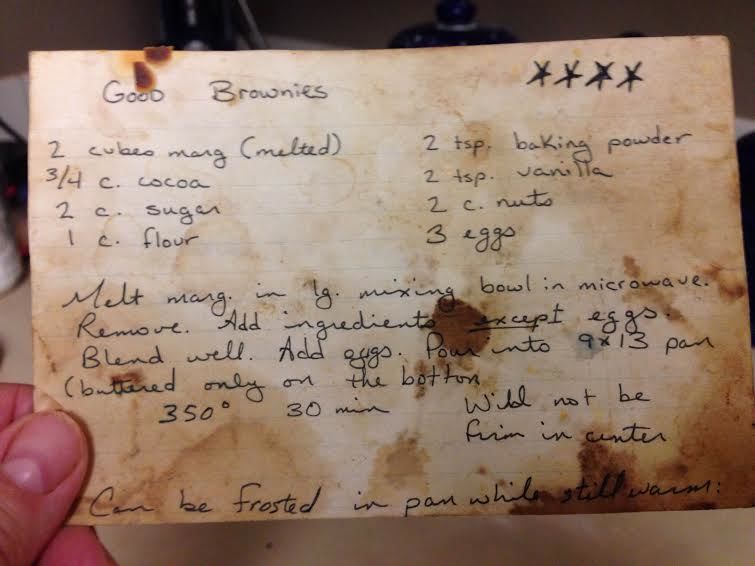 Good Brownies
2 cubes marg (melted)
3/4 c. cocoa
2 c. sugar
1 c. flour
2 tsp. baking powder
2 tsp. vanilla
2 c. nuts
3 eggs
Melt marg. in lg. mixing bowl in microwave.
Remove. Add ingredients except eggs.
Blend well. Add eggs. Pour into 9x13 pan
(buttered only on the bottom
350° 30 min
Will not be
firm in center
Can be frosted in pan while still warm: